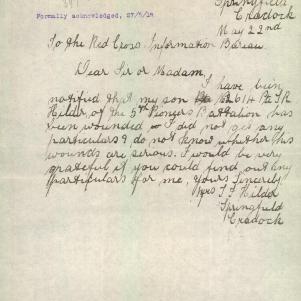 Springfield,
Cradock
Formally acknowledged, 27/5/18
May 22nd
To the Red Cross Information Bureau
Dear Sir or Madam,
I have been
notified that my son 2614 Pte J R
Hilder, of the 5th Pioneers Battalion has
been wounded & I did not get any
particulars & do not know whether his
wounds are serious. I would be very
grateful if you could find out any
particulars for me, Yours Sincerely
Mrs T J Hilder
Springfield
Cradock